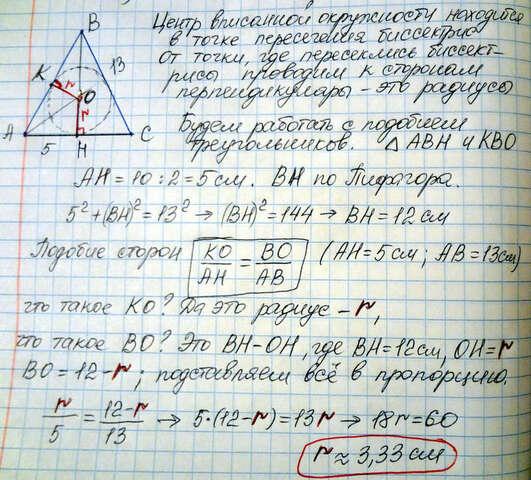 Центр вписанной окружности находится
в точке пересечения биссектрис
от точки, где пересеклись биссект-
рисы проводим к сторонам
перпендикуляры - это радиусы
B
K
13
r
O
r
A
5
H
C
Будем работать с подобием
треугольников. △ ABH и KBO
AH = 10 : 2 = 5 см. BH по Пифагора.
5² + (BH)² = 13² → (BH)² = 144 → BH = 12 см
Подобие сторон KO/AH = BO/AB (AH = 5 см ; AB = 13 см)
что такое KO? Да это радиус - r,
что такое BO? Это BH - OH, где BH = 12 см, OH = r
BO = 12 - r ; подставляем всё в пропорцию.
r/5 = 12-r/13 → 5·(12-r) = 13r → 18r = 60
r ≈ 3,33 см